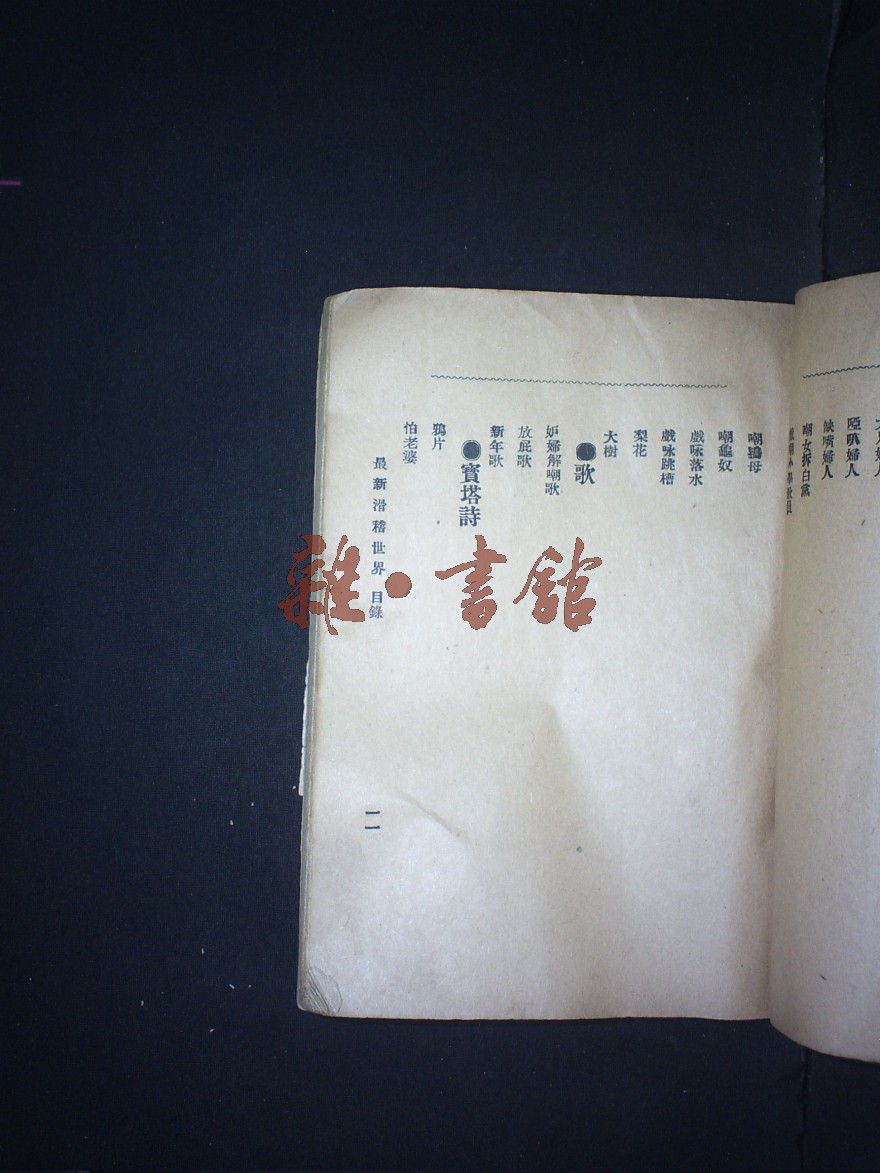 啞叭婦人
缺嘴婦人
嘲女拆白黨
嘲鴇母
嘲龜奴
戲咏落水
戲咏跳槽
梨花
大樹
●歌
妒婦解嘲歌
放屁歌
新年歌
●寶塔詩
鴉片
怕老婆
最新滑稽世界 目錄
一一
雜·書館